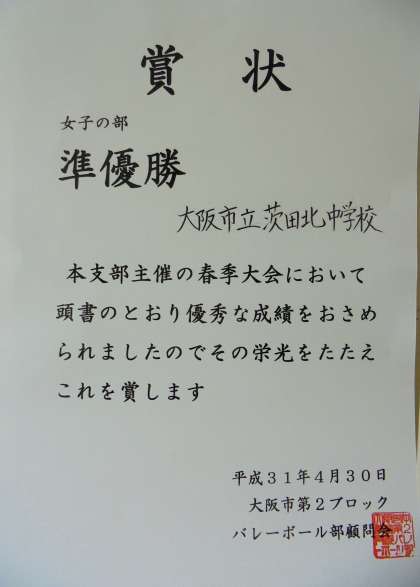 賞状
女子の部
準優勝
大阪市立茨田北中学校
本支部主催の春季大会において
頭書のとおり優秀な成績をおさめ
られましたのでその栄光をたたえ
これを賞します
平成31年4月30日
大阪市第2ブロック
バレーボール部顧問会